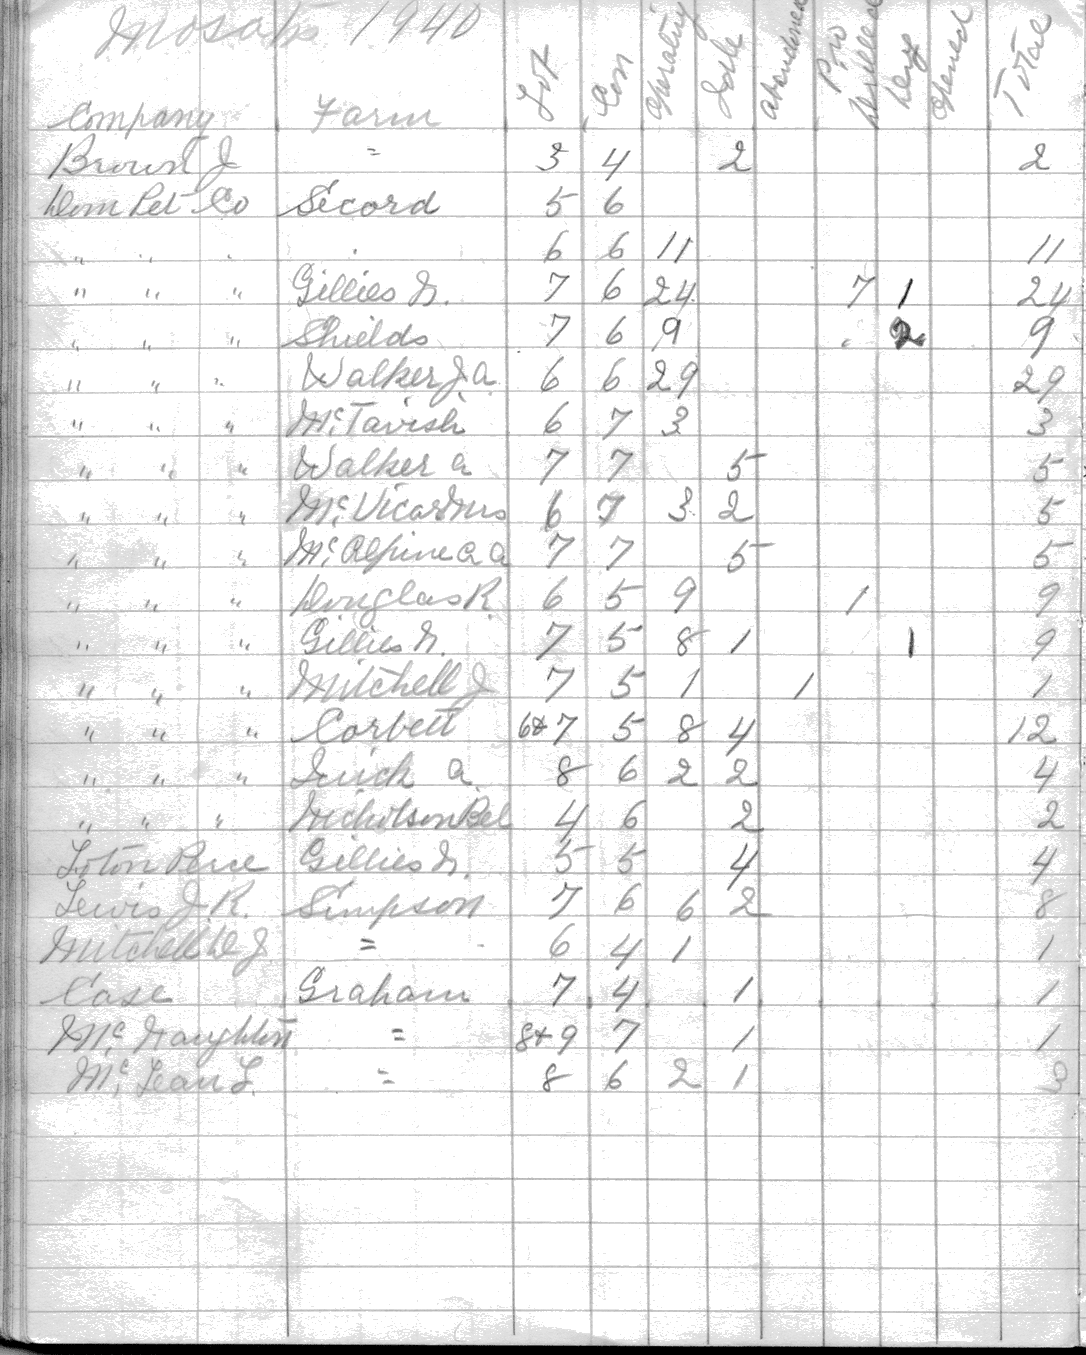 Mosa 1940
Company Farm Lot Con Operating Idle Abandoned Pro Drilled Deep Opened Total
Brown J " 3 4 2 2
Dom Pet Co Secord 5 6
" " " " 6 6 11 11
" " " Gillies N. 7 6 24 7 1 24
" " " Shields 7 6 9 " 2 9
" " " Walker J. A. 6 6 29 29
" " " McTavish 6 7 3 3
" " " Walker A 7 7 5 5
" " " McVicar Mrs 6 7 3 2 5
" " " McAlpine A A 7 7 5 5
" " " Douglas R. 6 5 9 1 9
" " " Gillies N. 7 5 8 1 1 9
" " " Mitchell J 7 5 1 1 1
" " " Corbett 6&7 5 8 4 12
" " " Quick A 8 6 2 2 4
" " " Nicholson 4 6 2 2
Gillies N. 5 5 4 4
Lewis J. R. Simpson 7 6 6 2 8
Mitchell D J = 6 4 1 1
Case Graham 7 4 1 1
McNaughton = 8&9 7 1 1
McLean L. = 8 6 2 1 3